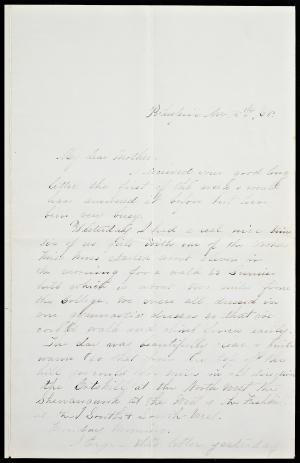 My dear Mother.
I received your good long
letter the first of the week & would
have answered it before but have
been very busy.
Yesterday I had a real nice time
six of us girls with one of the
started about seven in
the morning for a walk to Sunrise
hill which is about two miles from
the College. We were all dressed in
our gymnastic dresses so that we
could walk and climb fences easily.
The day was beautifully clear & quite
warm too that from the top of the
hill we could see miles in all directions
the Catskills at the North West the
Shawangunk at the West & the Fishkill
at the South & South West.
Sunday Morning.
I began this letter yesterday